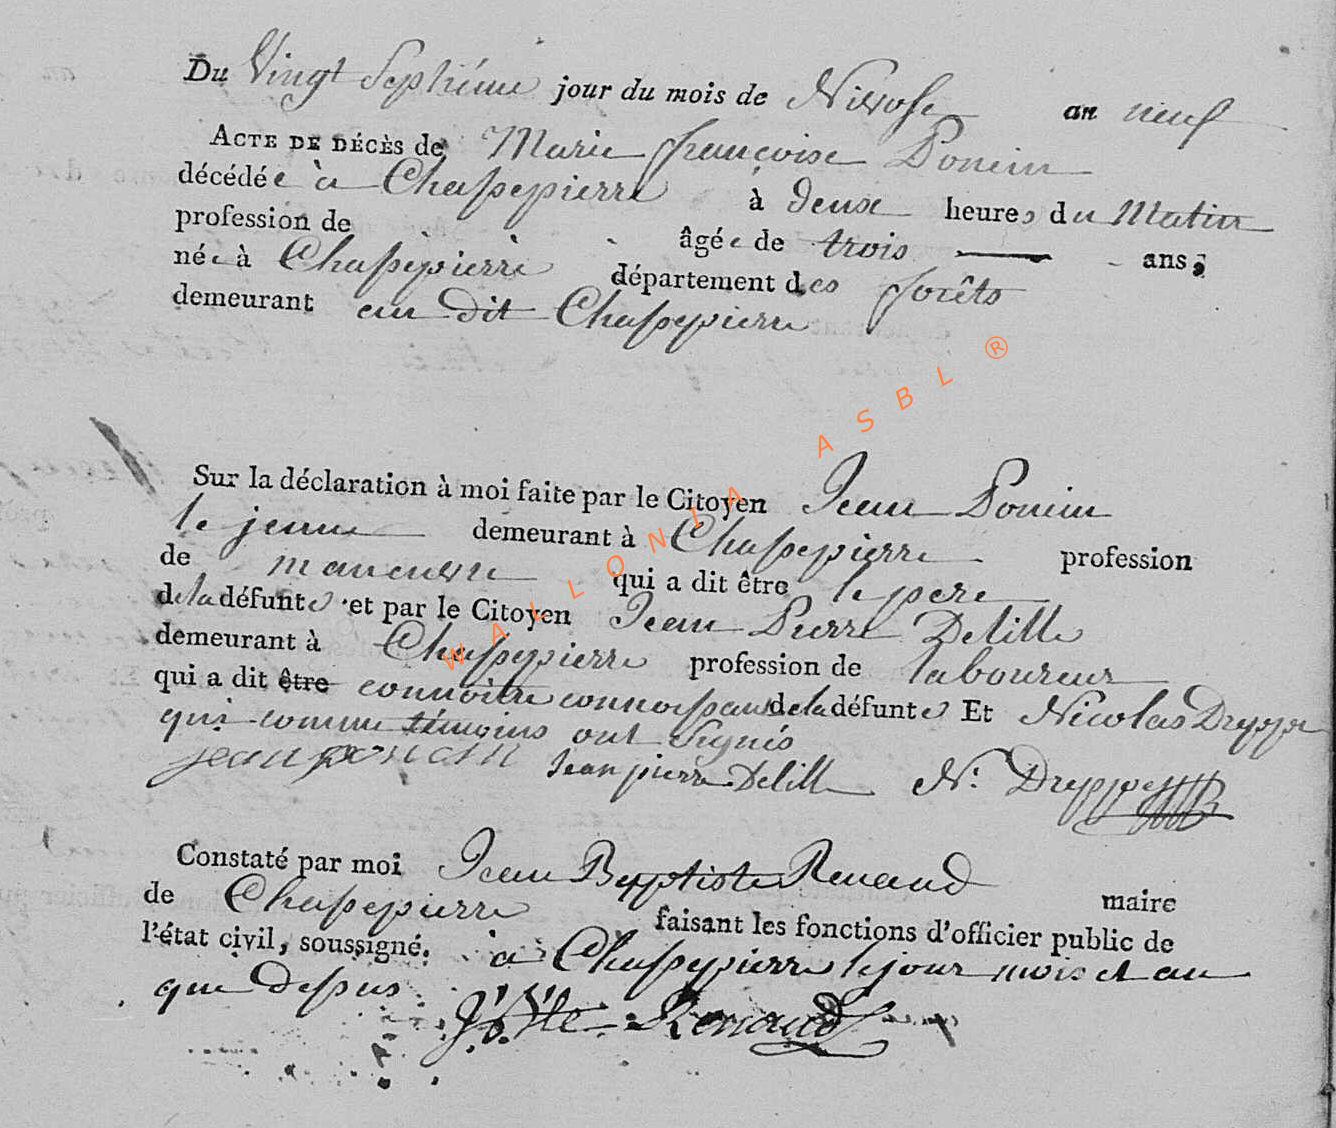 Du Vingt Septiéme jour du mois de Nivose an neuf
ACTE DE DÉCÈS de Marie françoise Poncin
décédée à Chassepierre à deux heures du Matin
profession de âgée de trois ans;
née à Chassepierre département des forêts
demeurant au dit Chassepierre
Sur la déclaration à moi faite par le Citoyen Jean Poncin
le jeune demeurant à Chassepierre profession
de manœuvre qui a dit être le pere
de la défunte et par le Citoyen Jean Pierre Delille
demeurant à Chassepierre profession de laboureur
qui a dit être connoitre connoissance de la défunte Et Nicolas Dreppe
qui comme témoins ont Signés
jean poncin Jean pierre Delille N. Dreppe
Constaté par moi Jean Baptiste Renaud maire
de Chassepierre faisant les fonctions d'officier public de
l'état civil, soussigné. à Chassepierre le jour mois et an
que dessus
J. Bte Renaud
WALLONIA ASBL ®